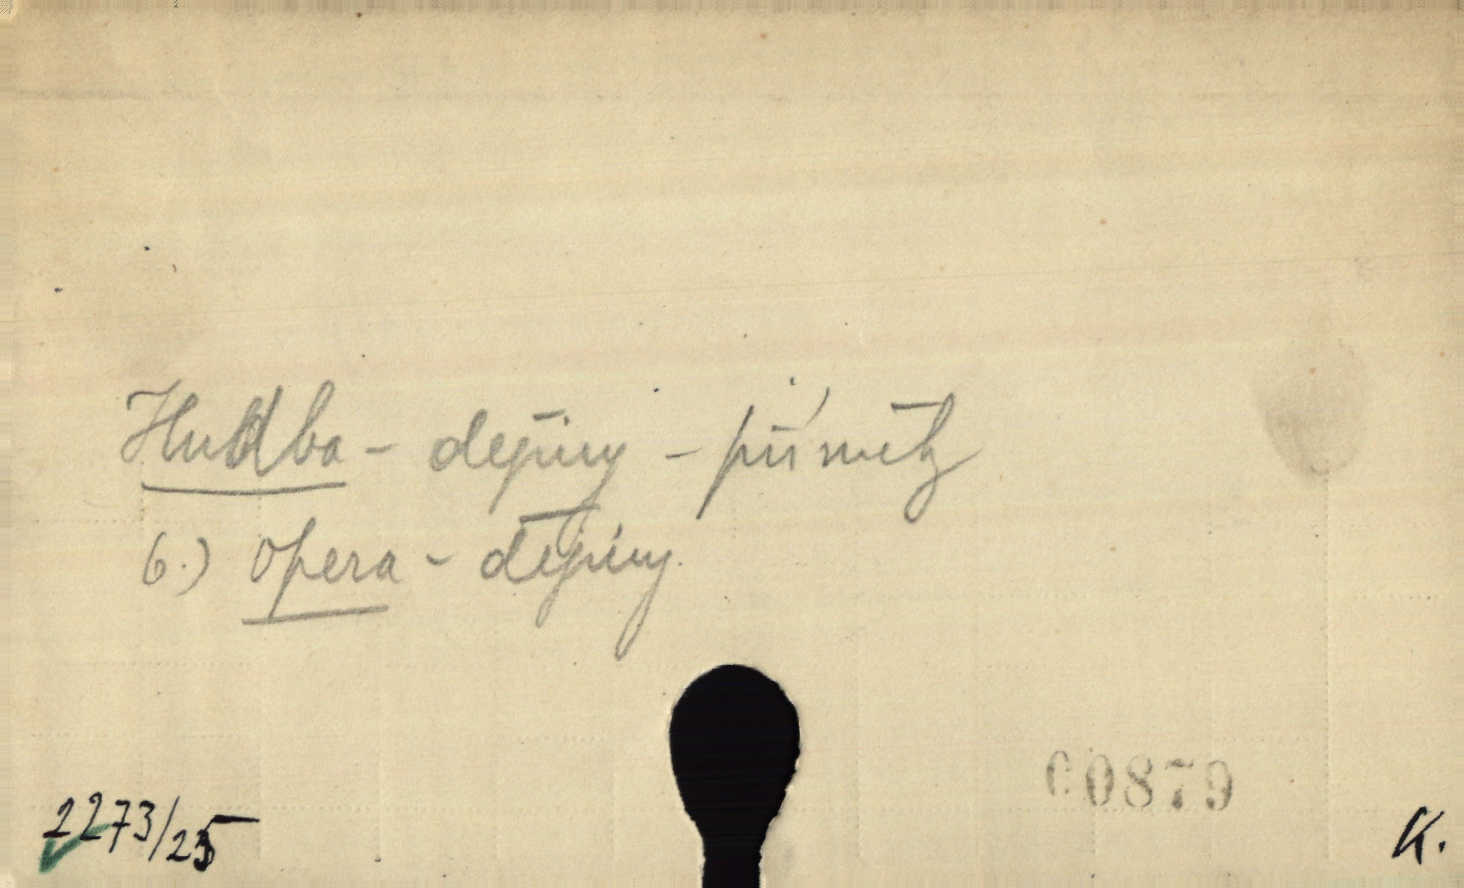 Hudba - dějiny - příručky
6.) Opera - dějiny.
00879
2273/25
K.